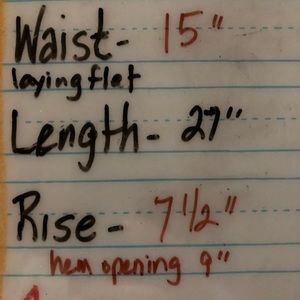 Waist- 15"
laying flat
Length- 27"
Rise- 7 1/2"
hem opening 9"